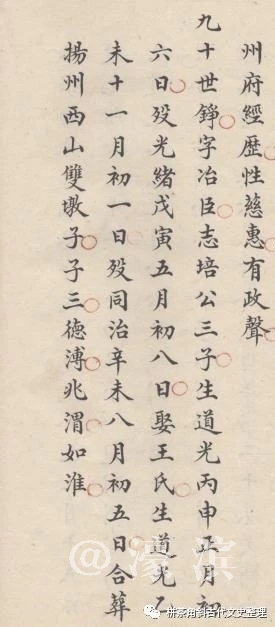 州府經歷性慈惠有政聲
九十世錚字冶臣志培公三子生道光丙申正月初
六日歿光緒戊寅五月初八日娶王氏生道光乙
未十一月初一日歿同治辛未八月初五日合葬
揚州西山雙墩子子三德溥兆渭如淮
@濠滨
拼茶角斜古代文史整理